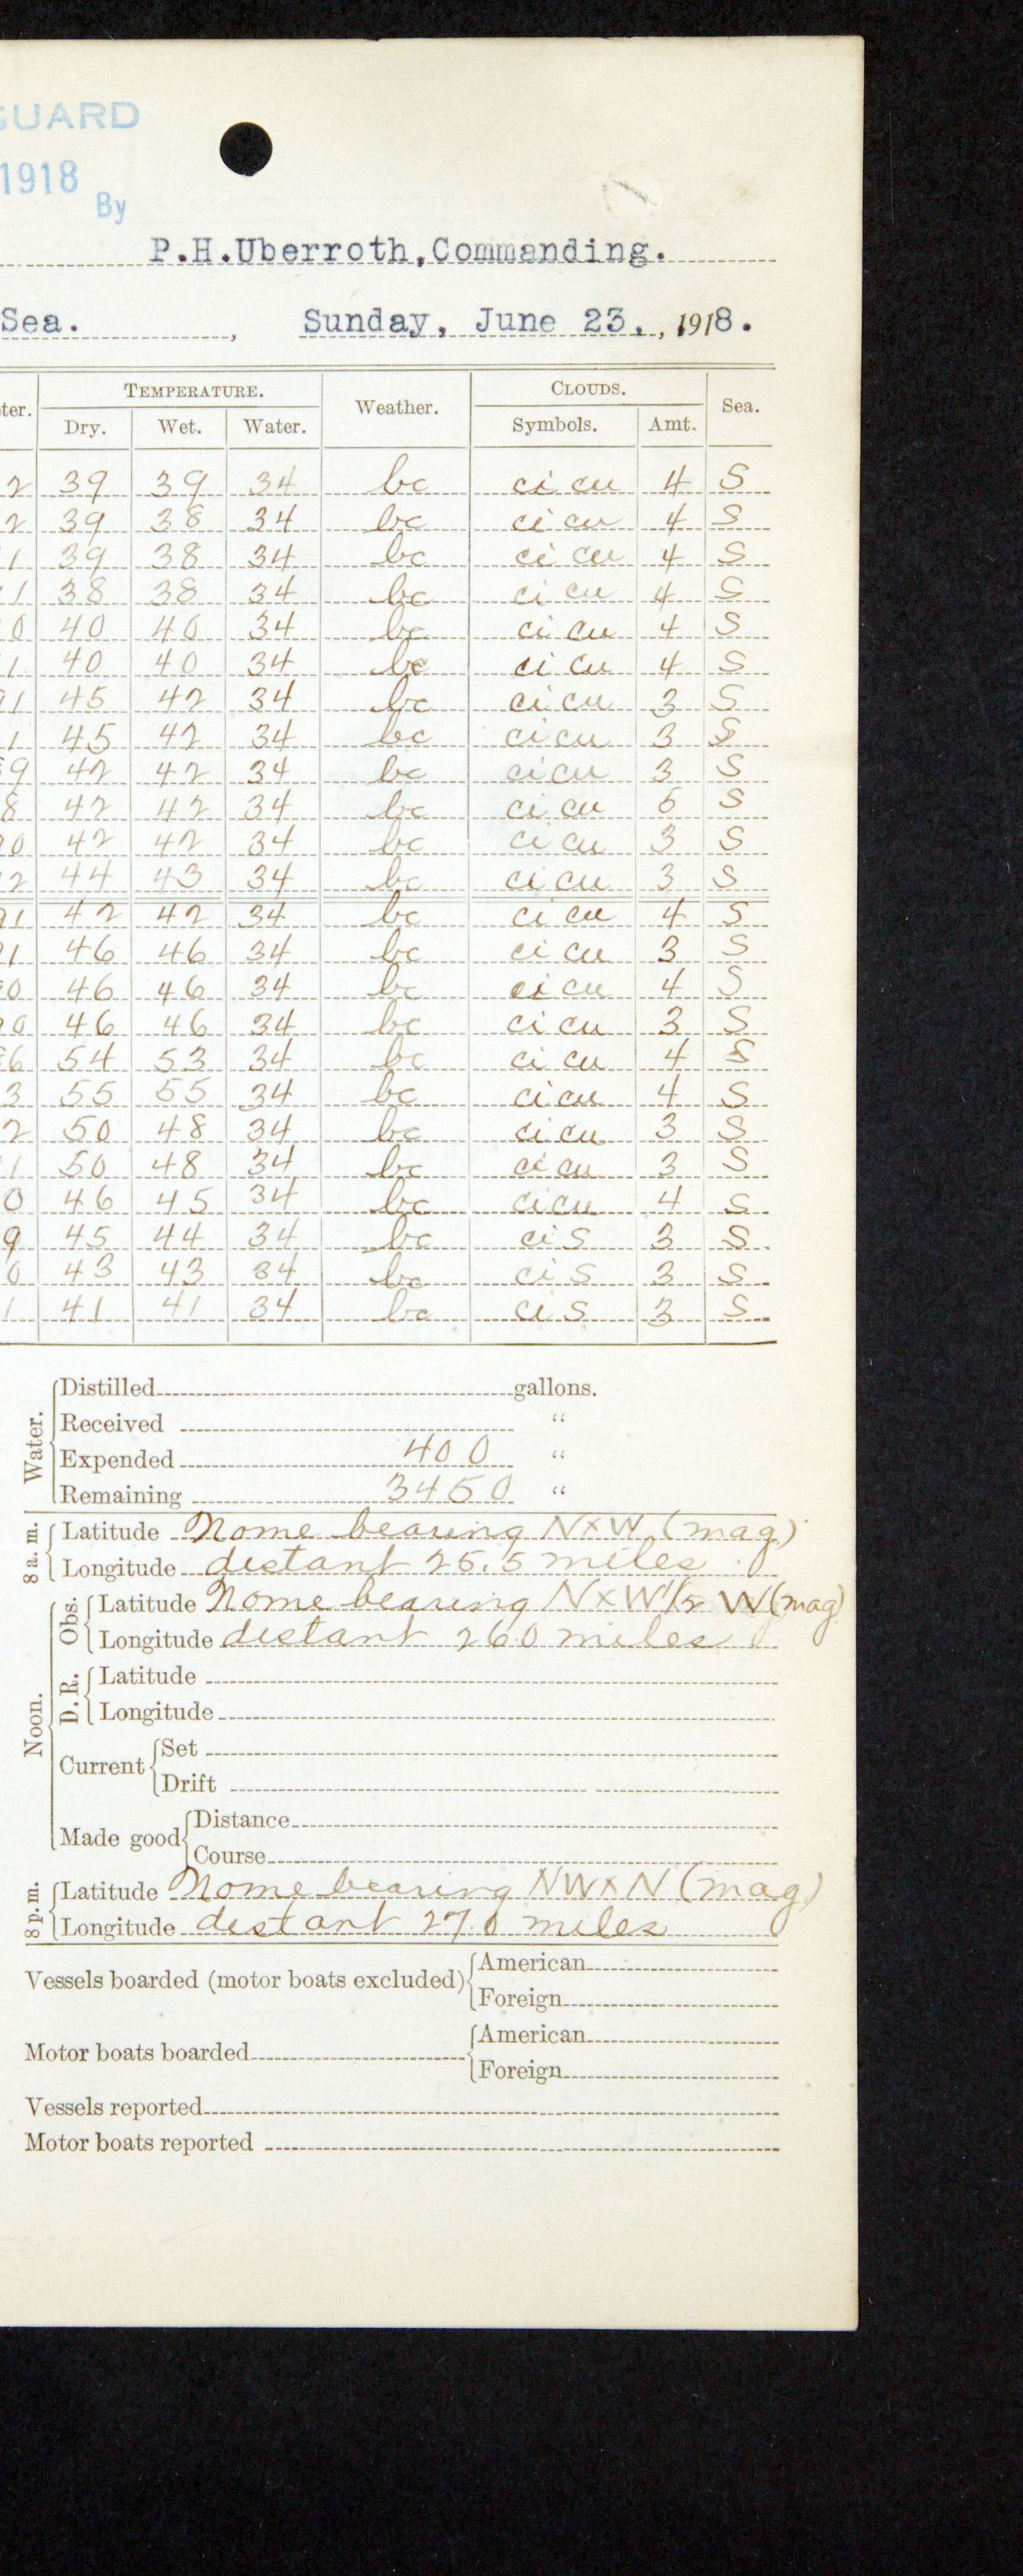 GUARD
1918
By
P.H.Uberroth,Commanding.
Sea. , Sunday, June 23, , 1918.
ter. TEMPERATURE. Weather. CLOUDS. Sea.
Dry. Wet. Water. Symbols. Amt.
2 39 39 34 bc ci cu 4 S
2 39 38 34 bc ci cu 4 S
1 39 38 34 bc ci cu 4 S
1 38 38 34 bc ci cu 4 S
0 40 40 34 bc ci cu 4 S
1 40 40 34 bc ci cu 4 S
91 45 42 34 bc ci cu 3 S
1 45 42 34 bc ci cu 3 S
89 42 42 34 bc ci cu 3 S
8 42 42 34 bc ci cu S
90 42 42 34 bc ci cu 3 S
92 44 43 34 bc ci cu 3 S
91 42 42 34 bc ci cu 4 S
91 46 46 34 bc ci cu 3 S
90 46 46 34 bc ci cu 4 S
90 46 46 34 bc ci cu 3 S
86 54 53 34 bc ci cu 4 S
3 55 55 34 bc ci cu 4 S
2 50 48 34 bc ci cu 3 S
1 50 48 34 bc ci cu 3 S
0 46 45 34 bc ci cu 4 S
9 45 44 34 bc ci s 3 S
0 43 43 34 bc ci s 3 S
1 41 41 34 bc ci s 3 S
Water.
Distilled gallons.
Received "
Expended 400 "
Remaining 3450 "
8 a. m.
Latitude Nome bearing NxW (mag)
Longitude distant 25.5 miles
Noon.
Obs.
Latitude Nome bearing NxW1/2 W (mag)
Longitude distant 260 miles
D. R.
Latitude
Longitude
Current Set
Drift
Made good Distance
Course
8 p. m.
Latitude Nome bearing NWxN (mag)
Longitude distant 27.0 miles
Vessels boarded (motor boats excluded) American
Foreign
Motor boats boarded American
Foreign
Vessels reported
Motor boats reported